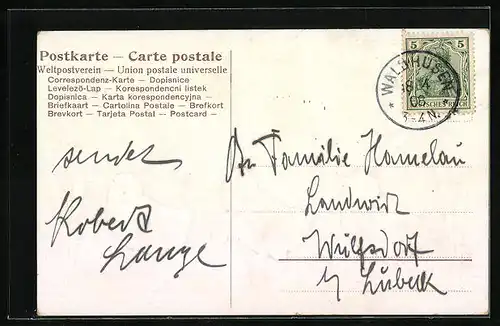 Postkarte — Carte postale
Weltpostverein — Union postale universelle
Correspondenz-Karte — Dopisnice
Levelező-Lap — Korespondencni listek
Dopisnica — Karta korespondencyjna —
Briefkaart — Cartolina Postale — Brefkort
Brevkort — Tarjeta Postal — Postcard —
5 5
WALDHUSEN
3-4N.
DEUTSCHES REICH
sendet
Robert
Lange
An Familie Hamelau
Landwirt
Wulfsdorf
b/ Lübeck